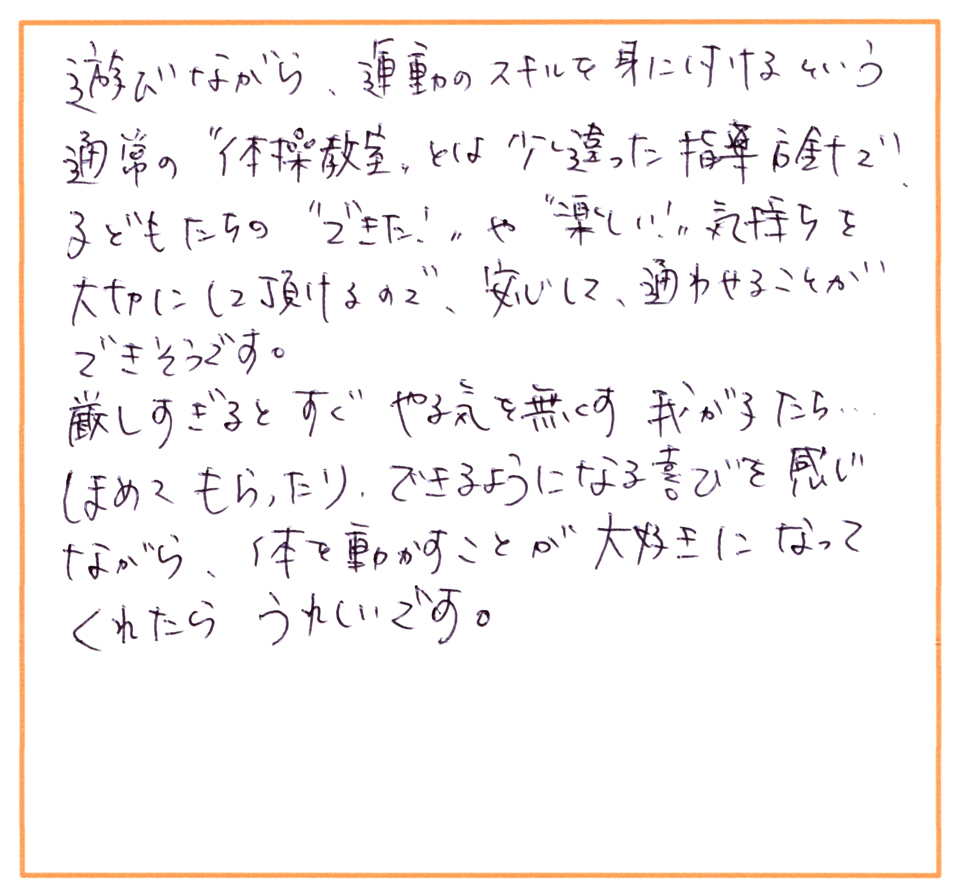 遊びながら、運動のスキルを身に付けるという
通常の〝体操教室〟とは少し違った指導方針で、
子どもたちの〝できた!〟や〝楽しい!〟気持ちを
大切にして頂けるので、安心して、通わせることが
できそうです。
厳しすぎるとすぐやる気を無くす我が子たち…
ほめてもらったり、できるようになる喜びを感じ
ながら、体を動かすことが大好きになって
くれたらうれしいです。